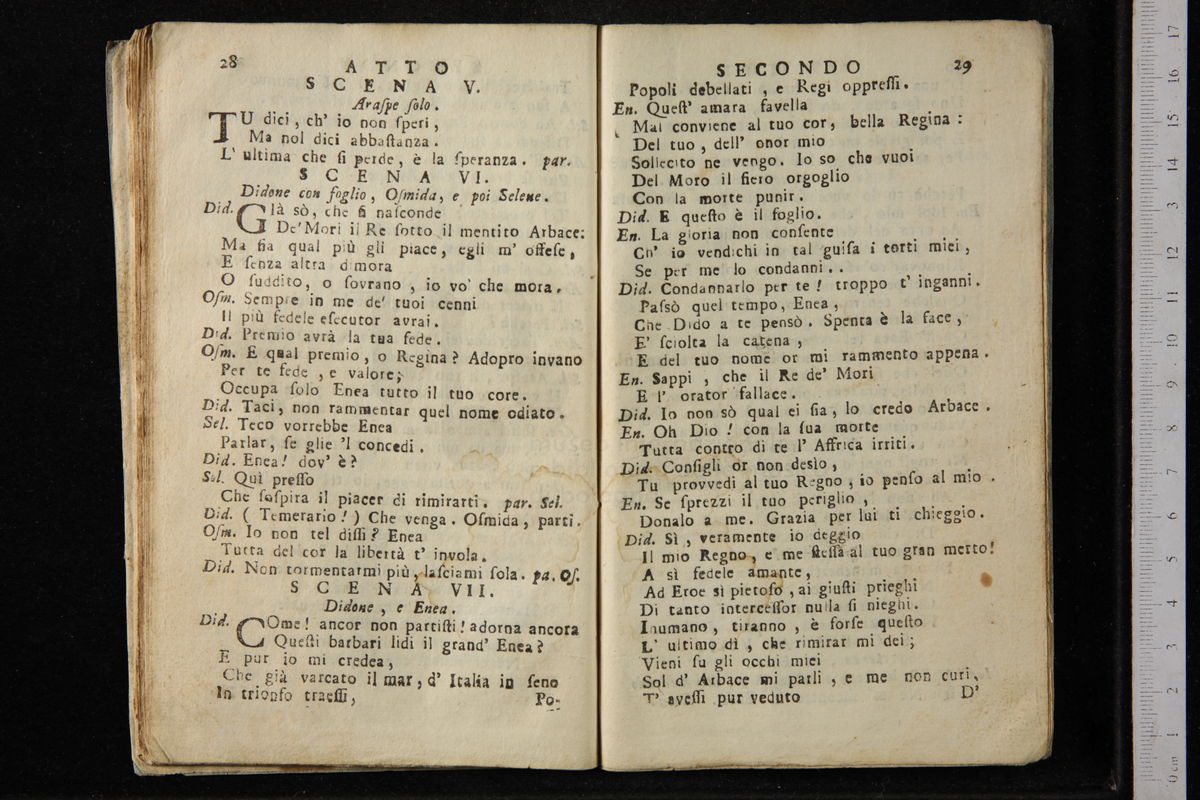 28
ATTO
SCENA V.
Araſpe ſolo.
TU dici, ch' io non ſperi,
Ma nol dici abbaſtanza.
L' ultima che ſi perde, è la ſperanza. par.
SCENA VI.
Didone con foglio, Oſmida, e poi Selene.
Did. GIà sò, che ſi naſconde
De' Mori il Re ſotto il mentito Arbace:
Ma ſia qual più gli piace, egli m' offeſe,
E ſenza altra dimora
O ſuddito, o ſovrano, io vo' che mora.
Oſm. Sempre in me de' tuoi cenni
Il più fedele eſecutor avrai.
Did. Premio avrà la tua fede.
Oſm. E qual premio, o Regina? Adopro invano
Per te fede, e valore;
Occupa ſolo Enea tutto il tuo core.
Did. Taci, non rammentar quel nome odiato.
Sel. Teco vorrebbe Enea
Parlar, ſe glie 'l concedi.
Did. Enea! dov' è?
Sel. Quì preſſo
Che ſoſpira il piacer di rimirarti. par. Sel.
Did. (Temerario!) Che venga. Oſmida, parti.
Oſm. Io non tel diſſi? Enea
Tutta del cor la libertà t' invola.
Did. Non tormentarmi più, laſciami ſola. pa. Oſ.
SCENA VII.
Didone, e Enea.
Did. COme! ancor non partiſti! adorna ancora
Queſti barbari lidi il grand' Enea?
E pur io mi credea,
Che già varcato il mar, d' Italia in ſeno
In trionfo traeſſi,
Po-
SECONDO
29
Popoli debellati, e Regi oppreſſi.
En. Queſt' amara favella
Mal conviene al tuo cor, bella Regina:
Del tuo, dell' onor mio
Sollecito ne vengo. Io so che vuoi
Del Moro il fiero orgoglio
Con la morte punir.
Did. E queſto è il foglio.
En. La gloria non conſente
Ch' io vendichi in tal guiſa i torti miei,
Se per me lo condanni..
Did. Condannarlo per te! troppo t' inganni.
Paſsò quel tempo, Enea,
Che Dido a te pensò. Spenta è la face,
E' ſciolta la catena,
E del tuo nome or mi rammento appena.
En. Sappi, che il Re de' Mori
E l' orator fallace.
Did. Io non sò qual ei ſia, lo credo Arbace.
En. Oh Dio! con la ſua morte
Tutta contro di te l' Affrica irriti.
Did. Conſigli or non deſìo,
Tu provvedi al tuo Regno, io penſo al mio.
En. Se ſprezzi il tuo periglio,
Donalo a me. Grazia per lui ti chieggio.
Did. Sì, veramente io deggio
Il mio Regno, e me ſteſſa al tuo gran merto!
A sì fedele amante,
Ad Eroe sì pietoſo, ai giuſti prieghi
Di tanto interceſſor nulla ſi nieghi.
Inumano, tiranno, è forſe queſto
L' ultimo dì, che rimirar mi dei;
Vieni ſu gli occhi miei
Sol d' Arbace mi parli, e me non curi,
T' aveſſi pur veduto
D'
0 cm 1 2 3 4 5 6 7 8 9 10 11 12 13 14 15 16 17